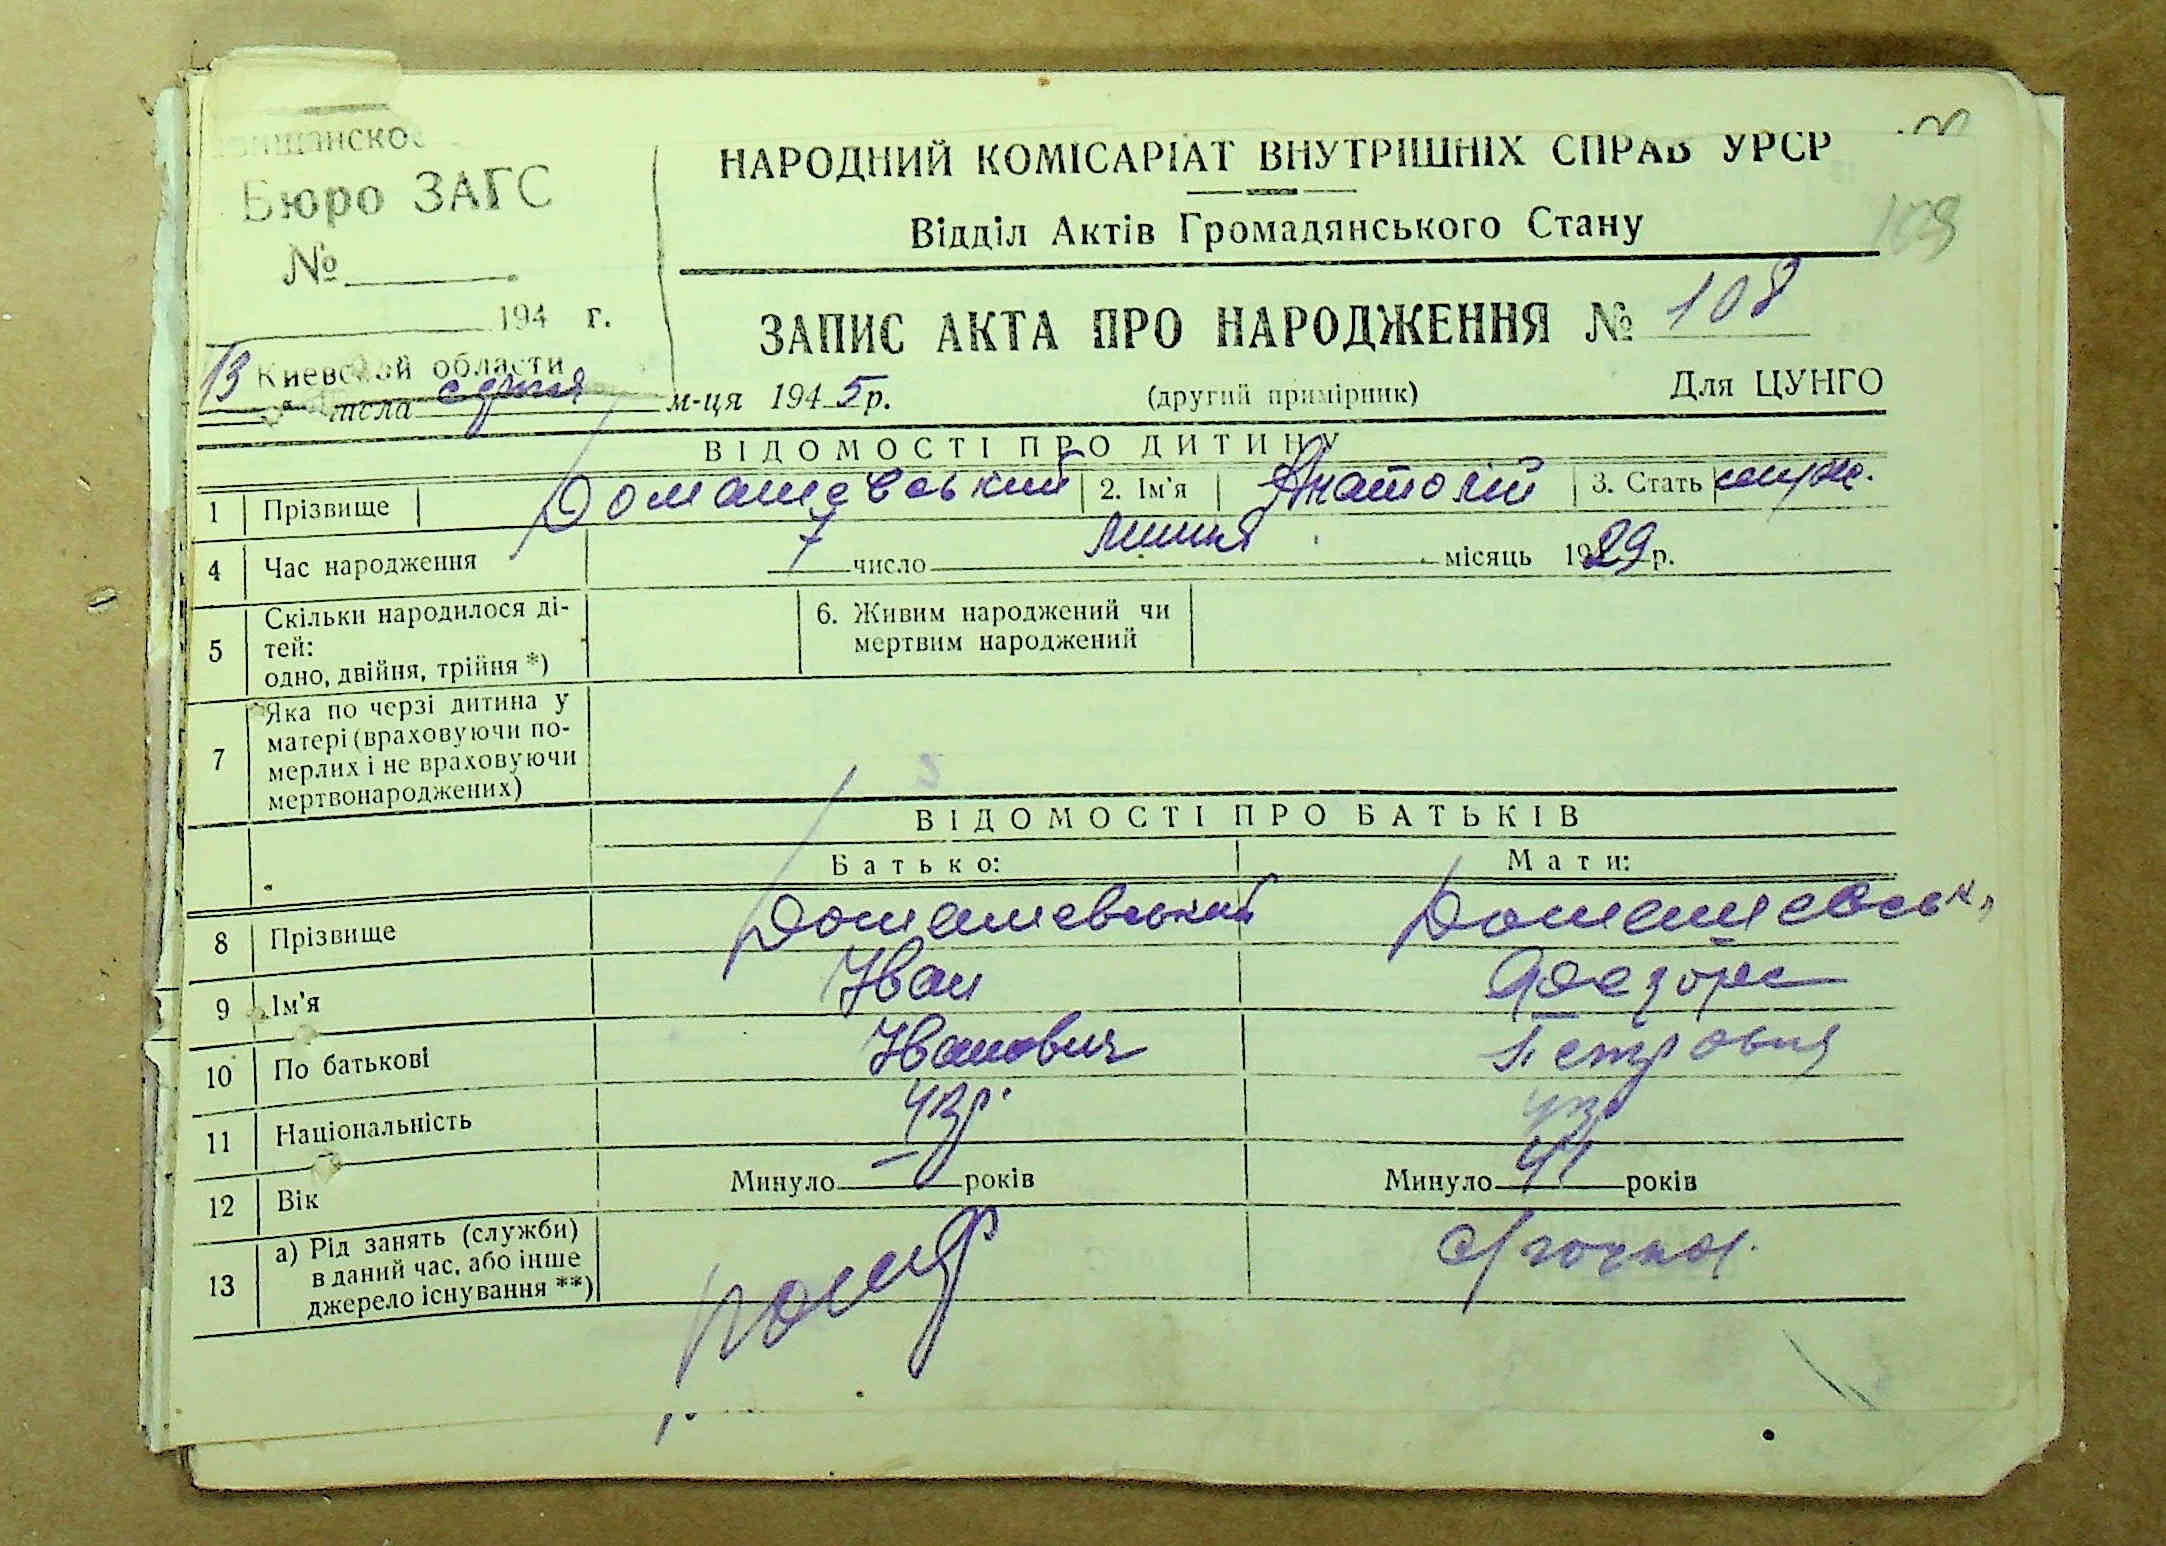 Бюро ЗАГС
№
194 г.
Киевской области
НАРОДНИЙ КОМІСАРІАТ ВНУТРІШНІХ СПРАВ УРСР
Відділ Актів Громадянського Стану
109
ЗАПИС АКТА ПРО НАРОДЖЕННЯ № 108
13 числа серпня м-ця 1945 р. (другий примірник) Для ЦУНГО
ВІДОМОСТІ ПРО ДИТИНУ
1 Прізвище Домашевський 2. Ім'я Анатолій 3. Стать муж.
4 Час народження 7 число липня місяць 1929 р.
5 Скільки народилося ді-
тей:
одно, двійня, трійня *)
6. Живим народжений чи
мертвим народжений
7 Яка по черзі дитина у
матері (враховуючи по-
мерлих і не враховуючи
мертвонароджених)
ВІДОМОСТІ ПРО БАТЬКІВ
Батько: Мати:
8 Прізвище Домашевський Домашевськ
9 Ім'я Іван
10 По батькові Іванович Петровна
11 Національність укр. укр
12 Вік Минуло — років Минуло років
13 а) Рід занять (служби)
в даний час, або інше
джерело існування **)